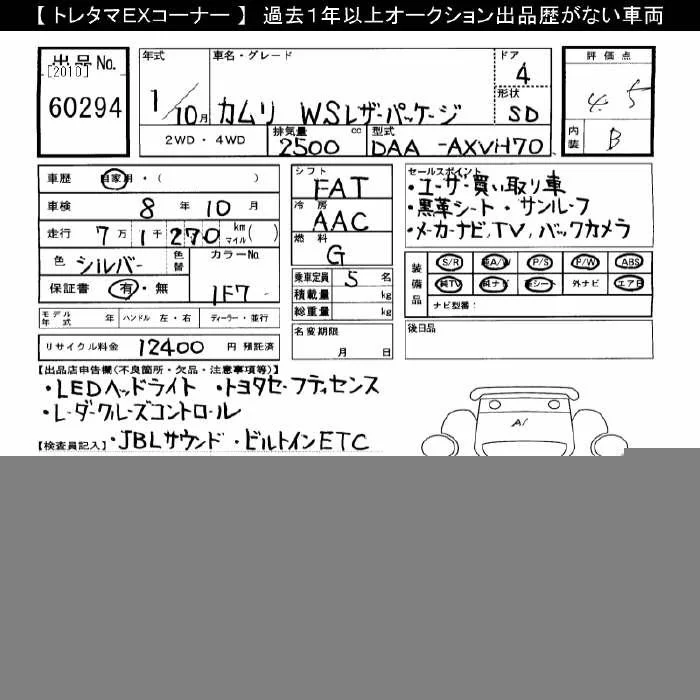 【 トレタマEXコーナー 】 過去１年以上オークション出品歴がない車両
出品No.
[2010]
60294
年式
1/10月
車名・グレード
カムリ WSレザーパッケージ
ドア
4
形状
SD
2WD・4WD
排気量 cc
2500
型式
DAA -AXVH70
評価点
4.5
内装
B
車歴 自家用・( )
車検 8年 10月
走行 7万 1千 270 km マイル( )
色 シルバー 色替
カラーNo.
1F7
保証書 有・無
モデル年式 年 ハンドル 左・右 ディーラー・並行
リサイクル料金 12400 円 預託済
シフト
FAT
冷房
AAC
燃料
G
乗車定員 5 名
積載量 kg
総重量 kg
名変期限
月 日
セールスポイント
・ユーザー買い取り車
・黒革シート・サンルーフ
・メーカーナビ,TV,バックカメラ
装備品
S/R 純A/W P/S P/W ABS
純TV 純ナビ 革シート 外ナビ エアB
ナビ型番:
後日品
【出品店申告欄(不良箇所・欠品・注意事項等)】
・LEDヘッドライト ・トヨタセーフティセンス
・レーダークルーズコントロール
【検査員記入】・JBLサウンド・ビルトインETC
A1